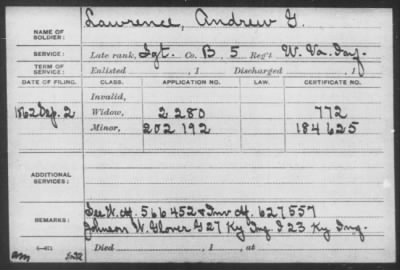 NAME OF SOLDIER: Lawrence, Andrew G.
SERVICE: Late rank, Sgt. Co. B, 5 Reg't W. Va. Inf.
TERM OF SERVICE: Enlisted , 1 Discharged , 1
DATE OF FILING. CLASS. APPLICATION NO. LAW. CERTIFICATE NO.
Invalid,
1862 Sep. 2 Widow, 2 280 772
Minor, 202 192 184 625
ADDITIONAL SERVICES:
See W. Of. 566 452 & Inv Of. 627 557
REMARKS: Johnson W. Glover G 27 Ky Inf. I 23 Ky Inf.
Died , 1 , at